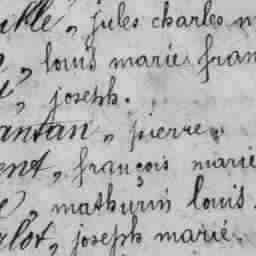 jules charles
, louis marie fran
, joseph.
antan, pierre.
ent, françois marie
, mathurin louis.
lot, joseph marie.